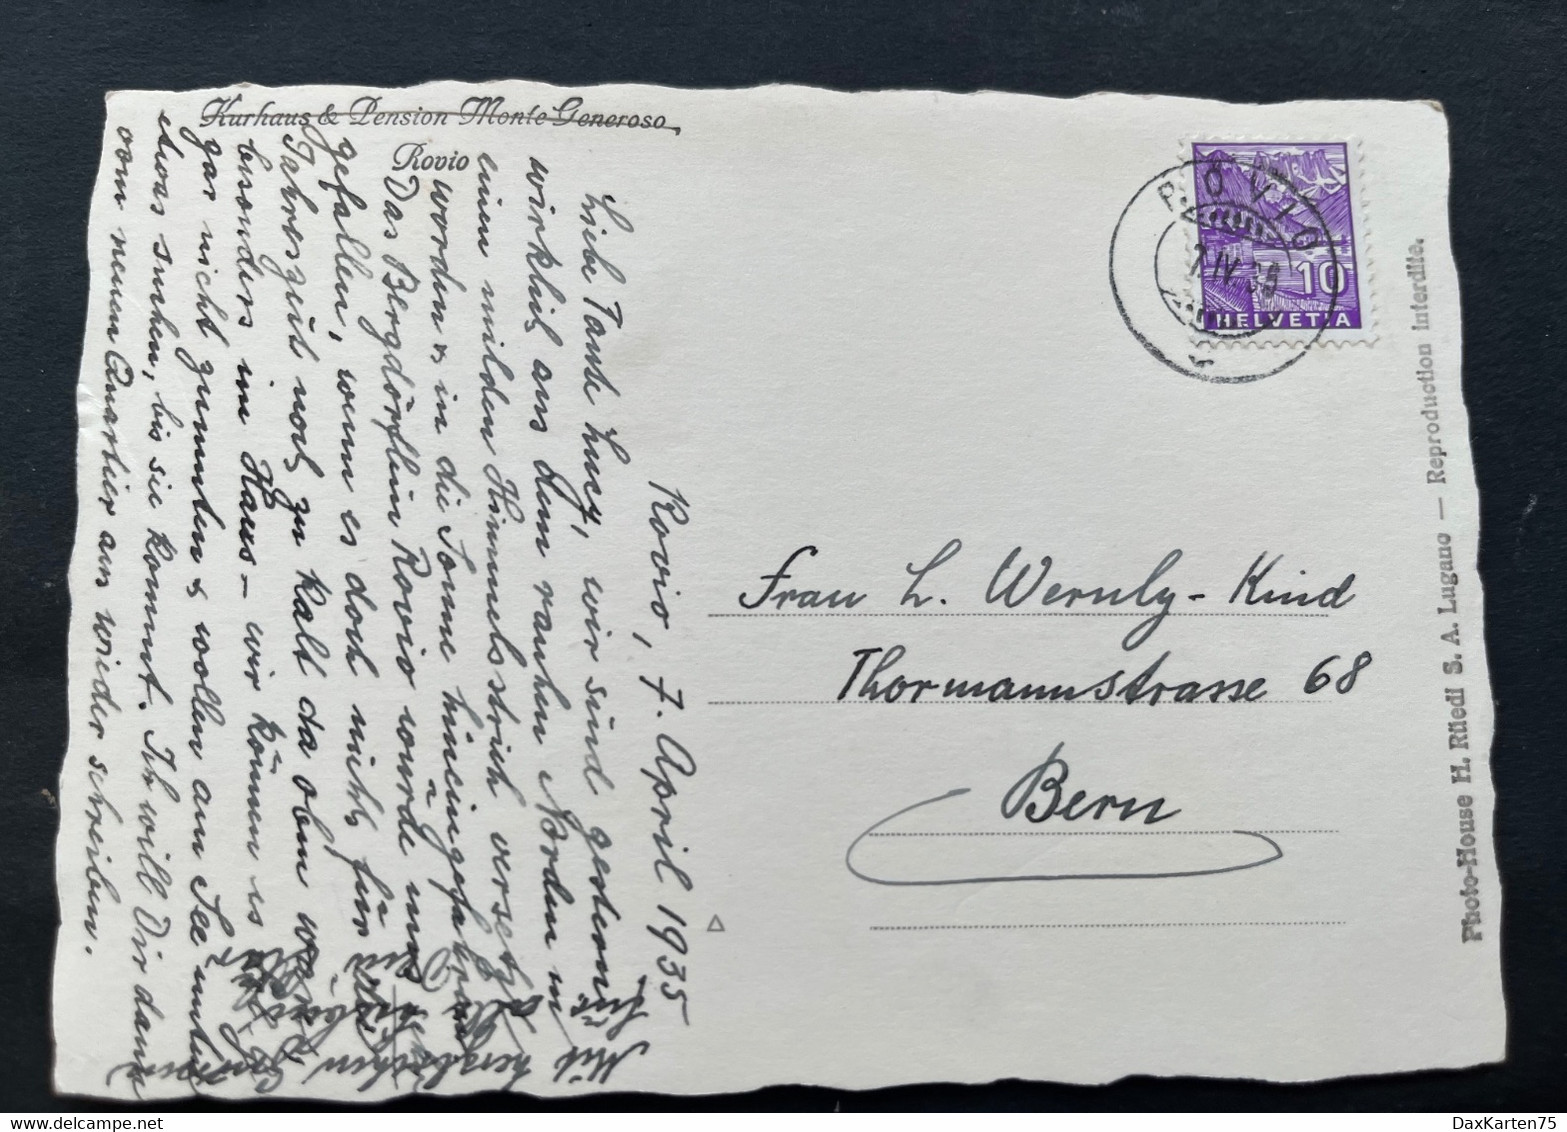 Kurhaus & Pension Monte Generoso,
Rovio
Rovio, 7. April 1935
Liebe Tante Lucy, wir sind gestern
wirklich aus dem rauhen Norden in
einen milden Himmelsstrich versetzt
worden & in die Sonne hineingefahren
Das Bergdörflein Rovio würde uns
gefallen, wenn es doch nicht für die
Jahreszeit noch zu kalt da oben wär,
besonders im Haus – wir können es
gar nicht &  wollen am See unten
etwas suchen, bis sie kommt. Ich will Dir dann
vom neuen Quartier aus wieder schreiben.
Mit herzlichen Grüssen
ROVIO
7 IV 35
10
HELVETIA
Frau L. Wernly-Kind
Thormannstrasse 68
Bern
Photo-House H. Rüedi S. A. Lugano — Reproduction interdite.
DaxKarten75